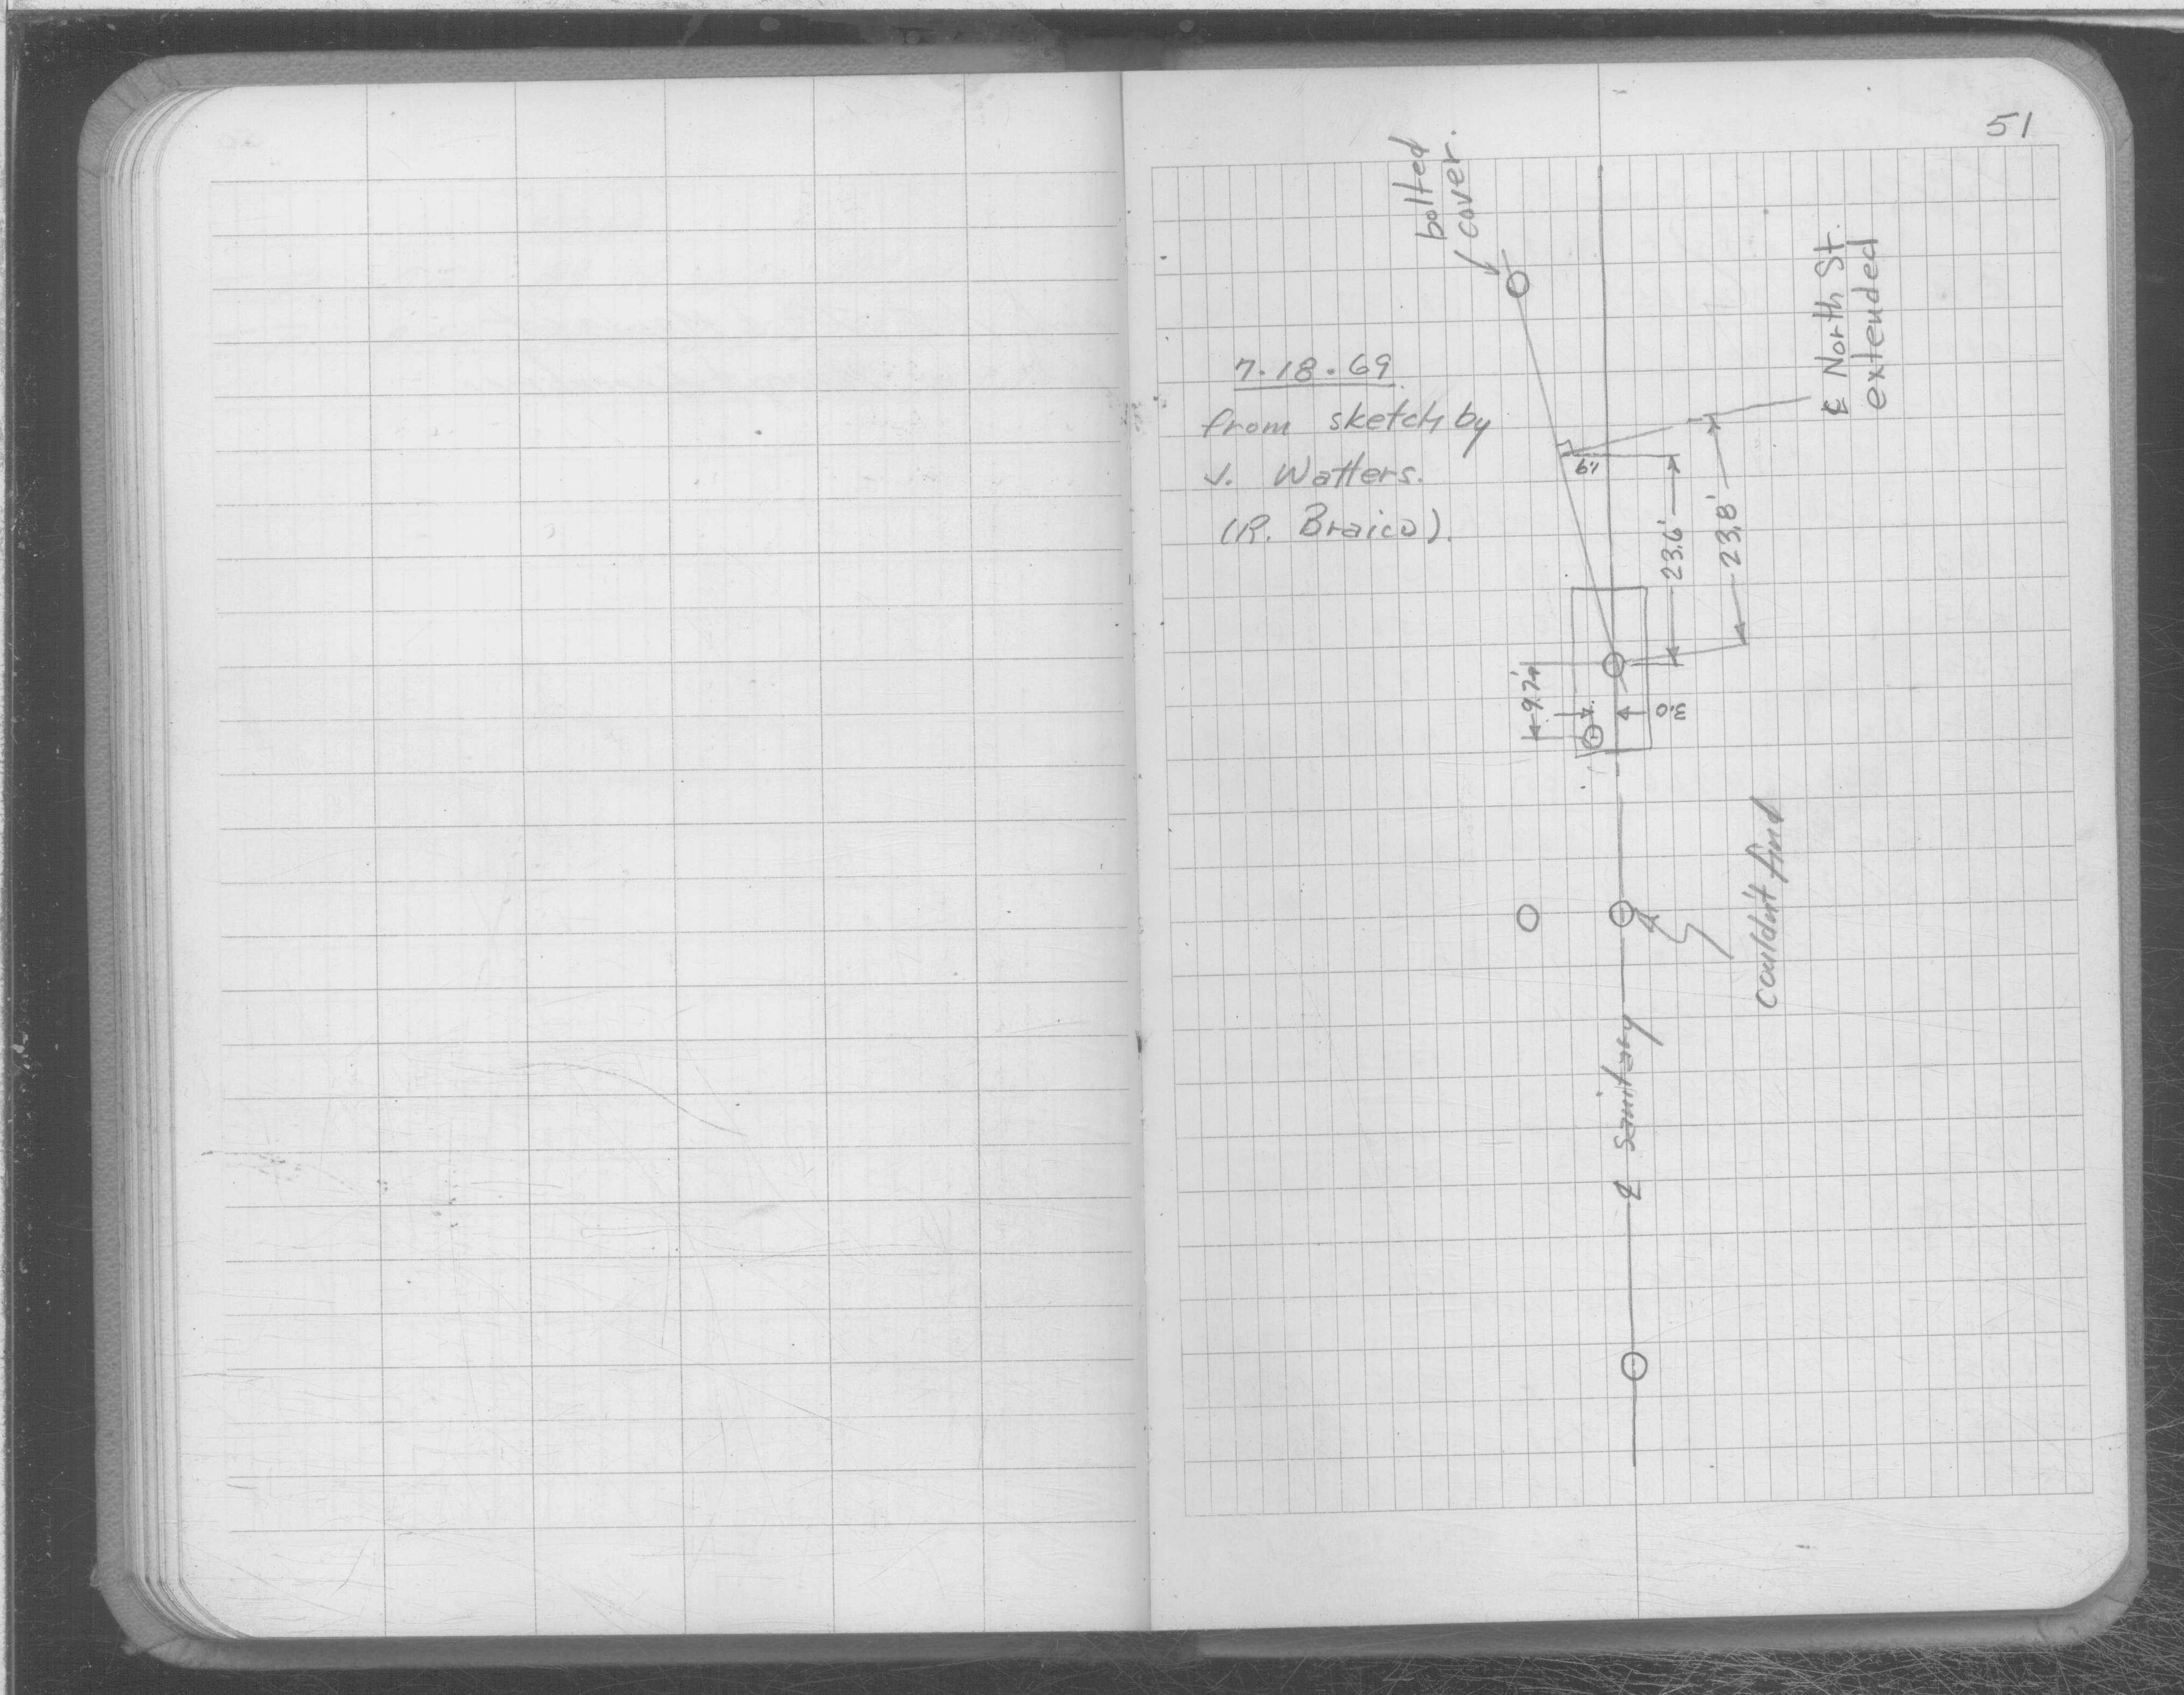 51
bolted
cover.
7.18.69
from sketch by
J. Watters.
(R. Braico).
℄ North St.
extended
23.6'
23.8'
9.7'
3.0
couldn't find
℄ Sanitary